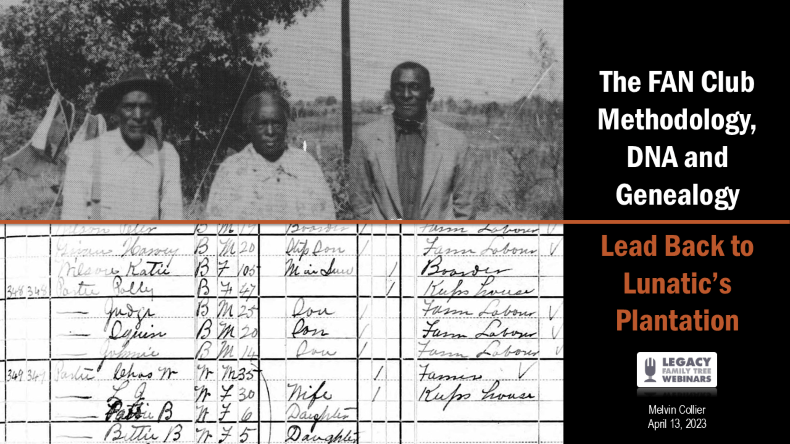 The FAN Club
Methodology,
DNA and
Genealogy
Lead Back to
Lunatic's
Plantation
LEGACY
FAMILY TREE
WEBINARS
Melvin Collier
April 13, 2023
B M Boarder / Farm Labour V
Harvey B M 20 Step Son / Farm Labour V
Wilson Katie B F 105 / Boarder
348 348 Partee Polly B F 47 / Keeps house
— Judge B M 25 Son / Farm Labour V
— Squire B M 20 Son / Farm Labour V
— Johnnie B M 14 Son / Farm Labour V
349 347 Partee Chas W W M 35 / Farmer V
— L J W F 30 Wife / Keeps house
— B W F 6 Daughter
— Bettie B W F 5 Daughter